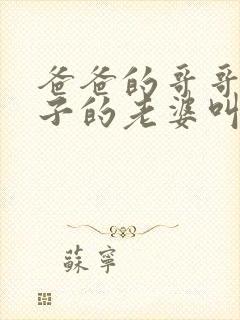 爸爸的哥哥
子的老婆叫
蘇寧